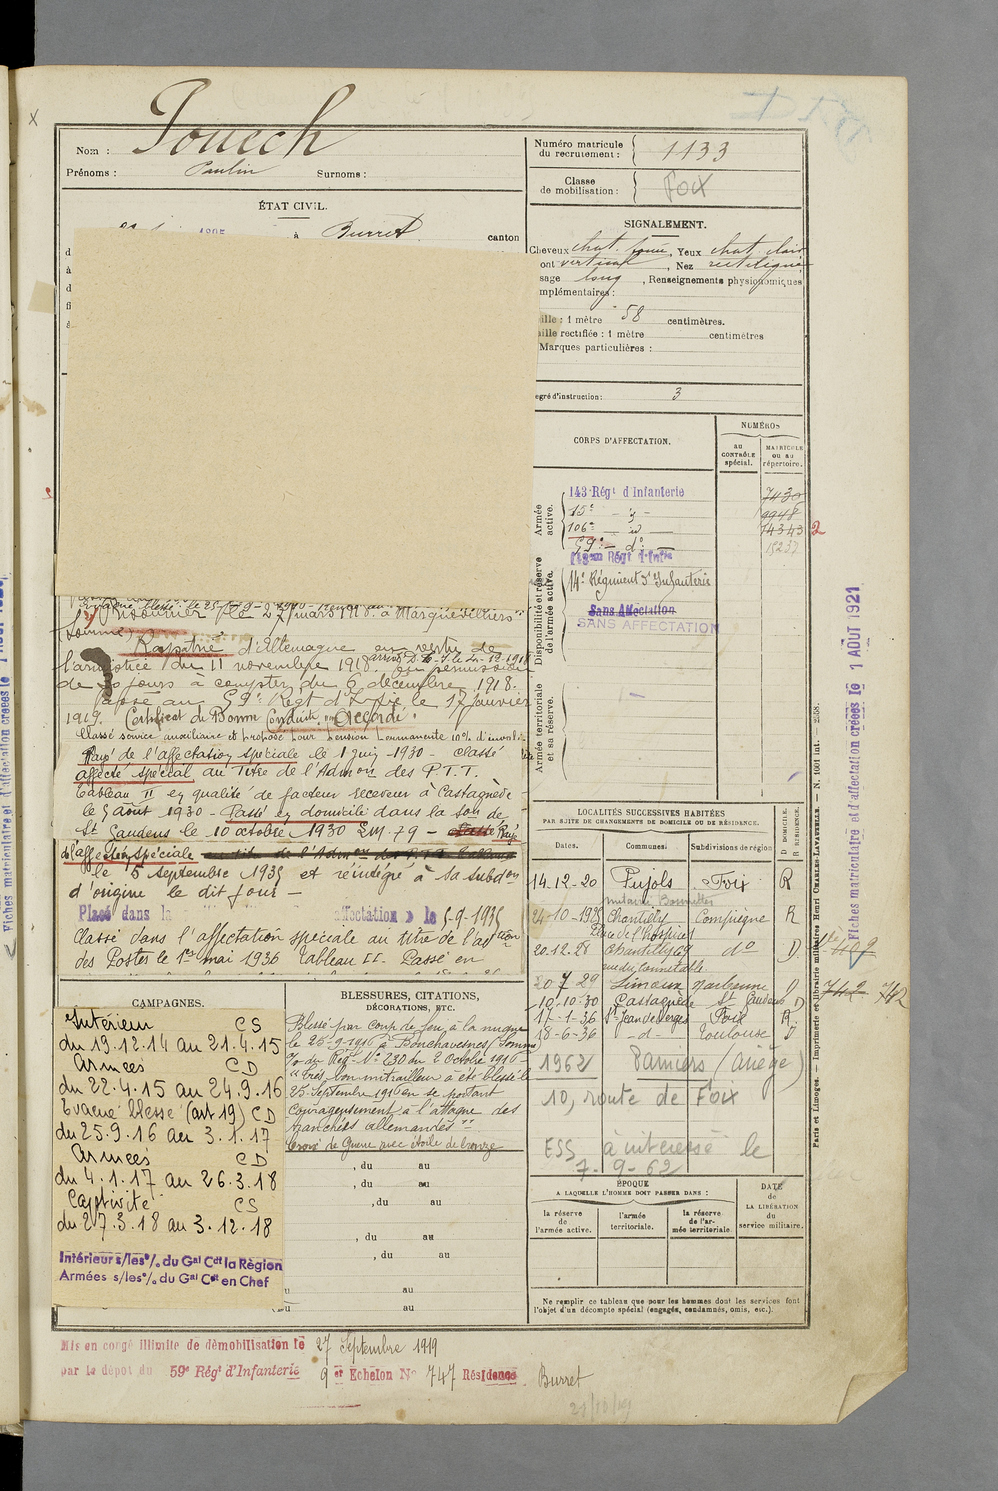 Nom : Pouech
Prénoms : Paulin Surnoms :
Numéro matricule du recrutement : 1133
Classe de mobilisation : Foix
ÉTAT CIVIL.
à Burret canton
SIGNALEMENT.
Cheveux chat. foncé, Yeux chat. clair
ont vertical, Nez rectiligne
sage long, Renseignements physionomiques
mplémentaires :
aille : 1 mètre 58 centimètres.
aille rectifiée : 1 mètre centimètres
Marques particulières :
egré d'instruction : 3
CORPS D'AFFECTATION.
NUMÉROS
au CONTRÔLE spécial.
MATRICULE ou au répertoire.
Armée active.
143 Régt d'Infanterie 7430
15e - d° - 9948
106e - d° - 14343 2
59e - d° - 15237
Disponibilité et réserve de l'armée active.
Régt d'Infie
14e Régiment d'Infanterie
Sans Affectation
SANS AFFECTATION
Armée territoriale et sa réserve.
Prisonnier le 27 mars 1918 à Marquevillers
(Somme)
Rapatrié d'Allemagne en vertu de
l'armistice du 11 novembre 1918. En permission
de 30 jours à compter du 6 décembre 1918.
Passé au 59e Régt d'Infie le 17 janvier
1919. Certificat de Bonne Conduite "Accordé"
Classé service auxiliaire et proposé pour pension permanente 10% d'invali-
Rayé de l'affectation spéciale le 1 juin 1930 - classé
affecté spécial au titre de l'Admon des P.T.T.
Tableau II en qualité de facteur receveur à Castagnède
le 5 août 1930 - Passé en domicile dans la son de
St Gaudens le 10 octobre 1930 LM 79 - Rayé
de l'affectation spéciale
le 5 septembre 1935 et réintégré à la subdon
d'origine le dit jour -
Placé dans la affectation » le 5-9-1935
Classé dans l'affectation spéciale au titre de l'adtion
des Postes le 1er mai 1936 Tableau II. Passé en
LOCALITÉS SUCCESSIVES HABITÉES
PAR SUITE DE CHANGEMENTS DE DOMICILE OU DE RÉSIDENCE.
Dates. Communes. Subdivisions de région D DOMICILE. R RÉSIDENCE.
14.12-20 Pujols Foix R
24-10-1925 Chantilly Compiègne R
Place de l'hospice
20.12.28 Chantilly 69 d° D
rue du connetable
20 7 29 Limoux Narbonne D
10-10-30 Castagnède St Gaudens D
17-1-36 St Jean de Verges Foix R
18-6-36 -d- Toulouse D
1962 Pamiers (Ariège)
10, route de Foix
ESS à intéressé le
7-9-62
742 742
CAMPAGNES.
Intérieur CS
du 19.12.14 au 21.4.15
Armées CD
du 22.4.15 au 24.9.16
Evacué blessé (art 19) CD
du 25.9.16 au 3.1.17
Armées CD
du 4.1.17 au 26.3.18
Captivité CS
du 27.3.18 au 3.12.18
Intérieur s/les °/. du Gal Cdt la Région
Armées s/les °/. du Gal Cdt en Chef
BLESSURES, CITATIONS, DÉCORATIONS, ETC.
Blessé par coup de feu, à la nuque
le 25-9-1916 à Bouchavesnes (Somme)
% du Régt N° 230 du 2 octobre 1916
"Très bon mitrailleur a été blessé le
25 Septembre 1916 en se portant
courageusement à l'attaque des
tranchées allemandes"
Croix de Guerre avec étoile de bronze
, du au
, du au
, du au
, du au
, du au
u au
du au
ÉPOQUE
A LAQUELLE L'HOMME DOIT PASSER DANS :
la réserve de l'armée active.
l'armée territoriale.
la réserve de l'armée territoriale.
DATE de LA LIBÉRATION du service militaire.
Ne remplir ce tableau que pour les hommes dont les services font
l'objet d'un décompte spécial (engagés, condamnés, omis, etc.).
Mis en congé illimité de démobilisation le 27 Septembre 1919
par le dépôt du 59e Régt d'Infanterie 9er Echelon N° 747 Résidence Burret
Paris et Limoges. — Imprimerie et librairie militaires Henri CHARLES-LAVAUZELLE. — N. 1001 int. — 2-58.
Fiches matriculaire et d'affectation créées le 1 AOUT 1921